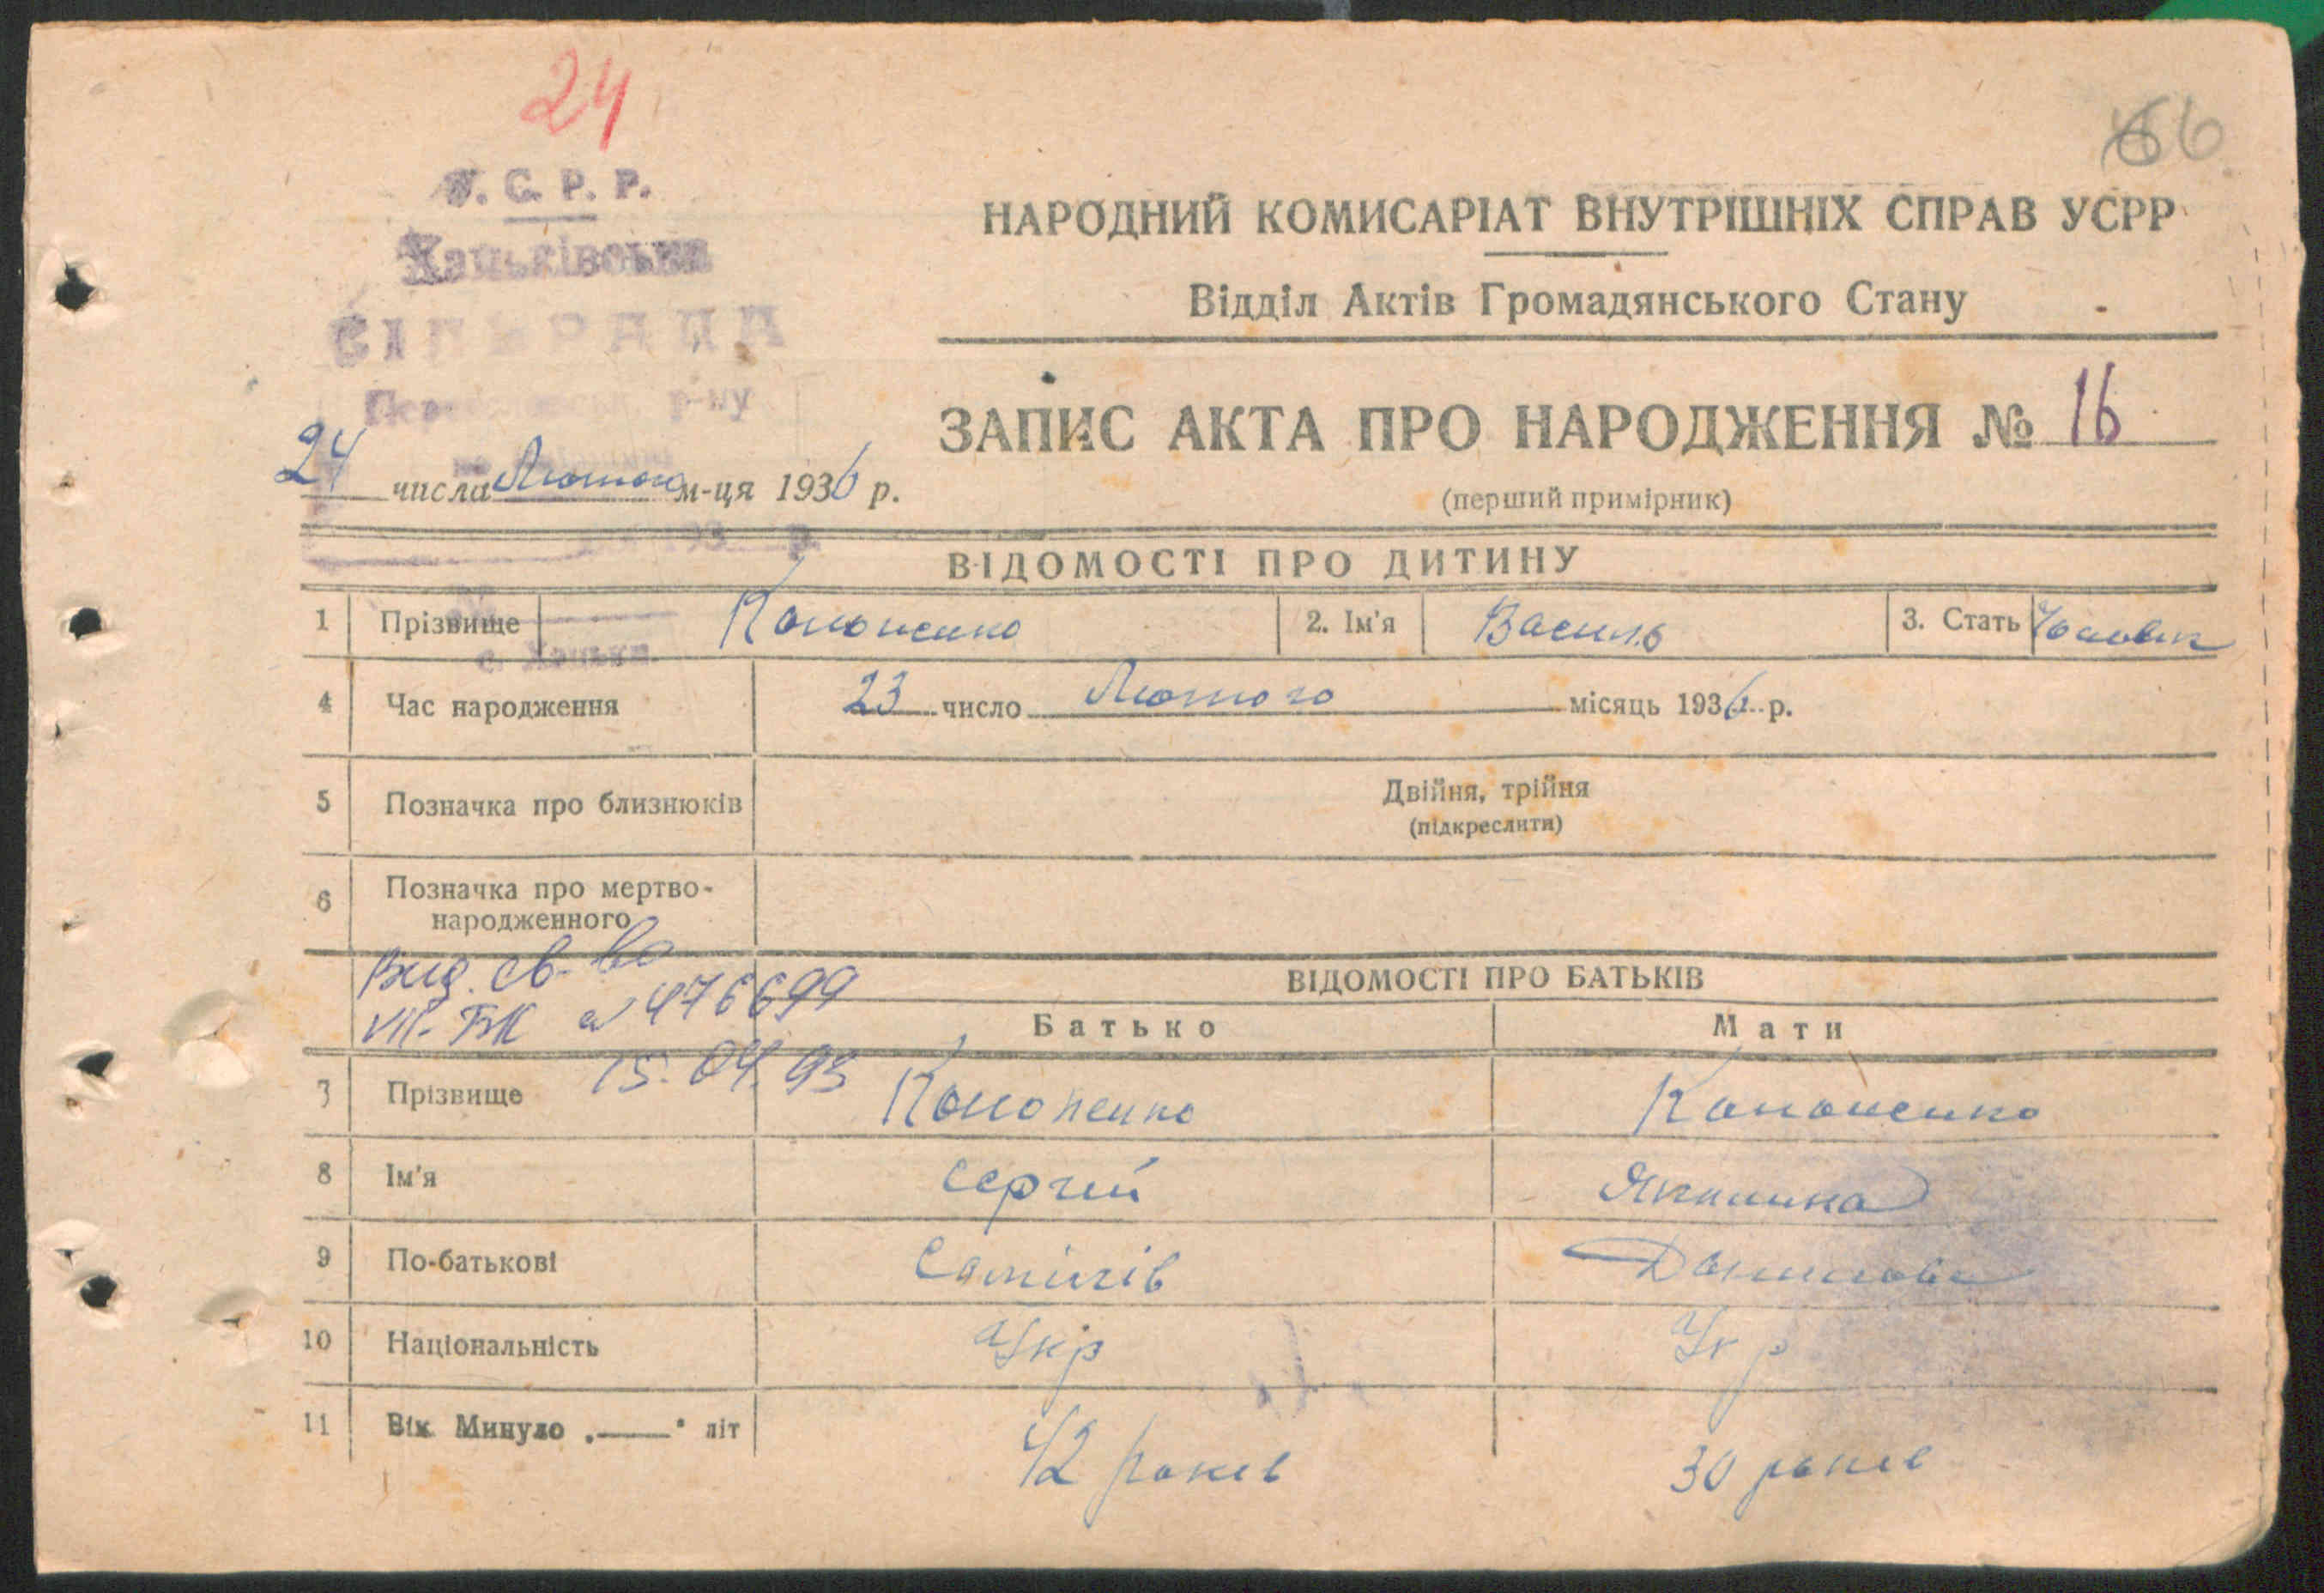 24
66
У. С. Р. Р.
Ханьківська
СІЛЬРАДА
р-ну
НАРОДНИЙ КОМИСАРІАТ ВНУТРІШНІХ СПРАВ УСРР
Відділ Актів Громадянського Стану
ЗАПИС АКТА ПРО НАРОДЖЕННЯ № 16
(перший примірник)
24 числа Лютого м-ця 1936 р.
193 р.
ВІДОМОСТІ ПРО ДИТИНУ
1 Прізвище Кононенко 2. Ім'я Василь 3. Стать Чоловік
с. Ханьки
4 Час народження 23 число Лютого місяць 1936 р.
5 Позначка про близнюків Двійня, трійня
(підкреслити)
6 Позначка про мертво-
народженного
Вид. св-во
VII-БК № 476699
15.04.93
ВІДОМОСТІ ПРО БАТЬКІВ
Батько Мати
7 Прізвище Кононенко Кононенко
8 Ім'я Сергій
9 По-батькові Данилова
10 Національність Укр Укр
11 Вік Минуло „——" літ 42 років 30 років